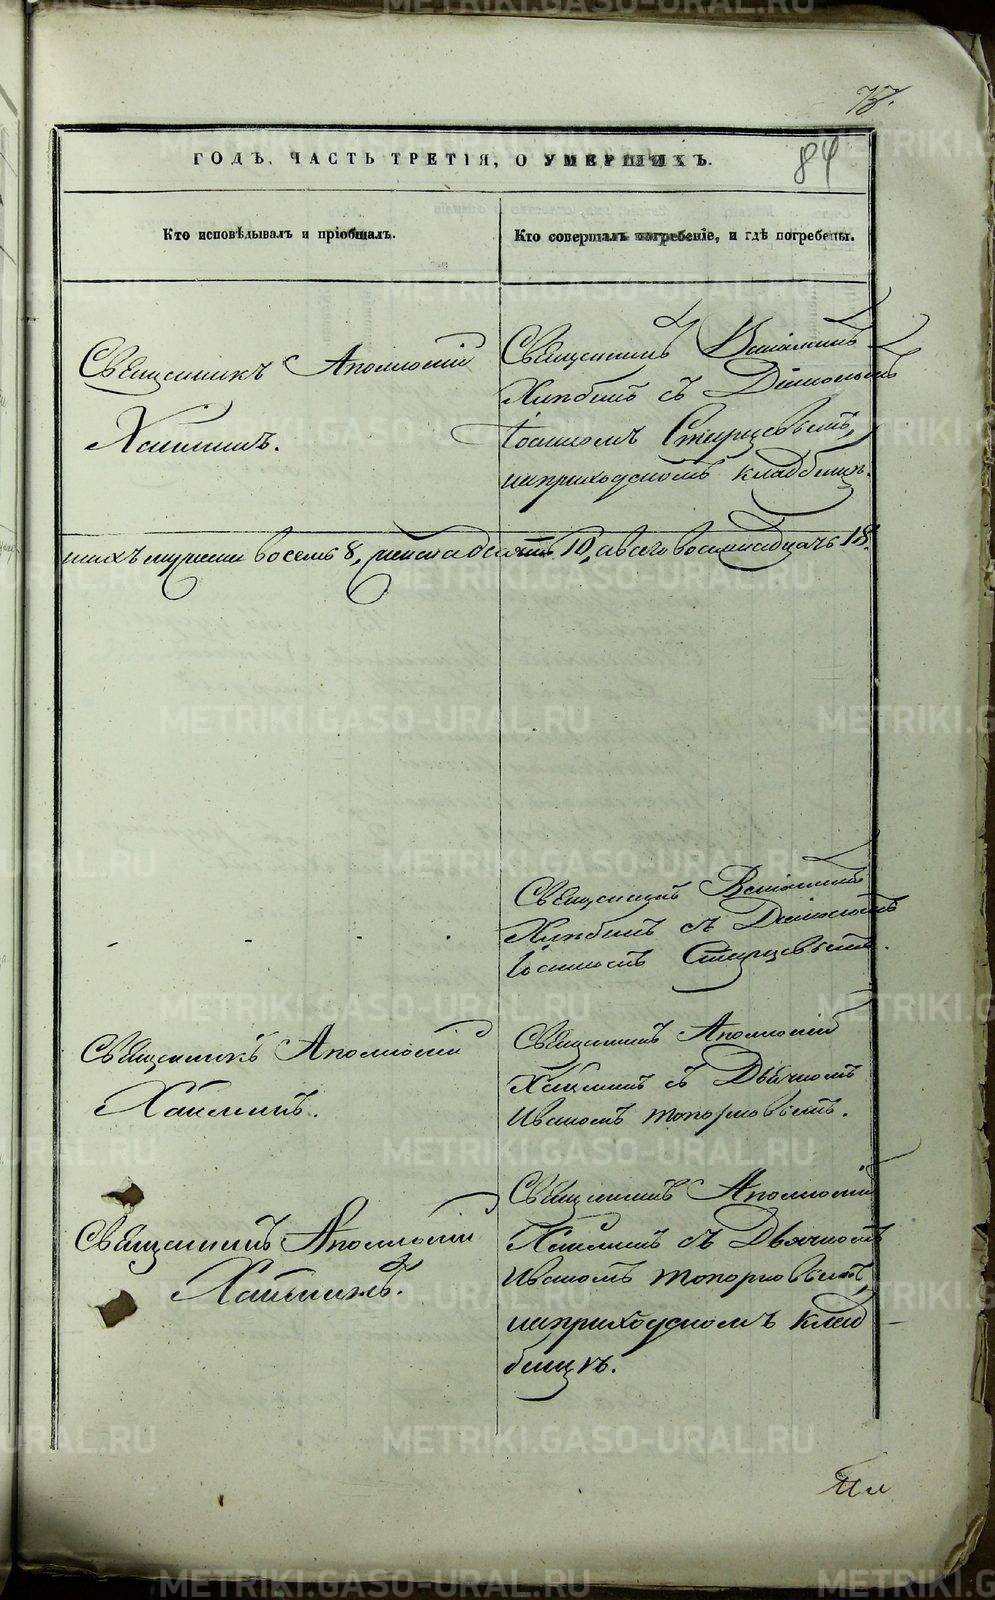 84
ГОДЪ. ЧАСТЬ ТРЕТІЯ, О УМЕРШИХЪ.
Кто исповѣдывалъ и пріобщалъ.
Кто совершалъ погребеніе, и гдѣ погребены.
Священникъ Аполлоній
Священникъ
съ Діакономъ
Іоанномъ Стярцовымъ,
наприходскомъ кладбищѣ.
шихъ мужеска восемь 8, женска десять 10, а всего восемнадцать 18.
Священникъ
съ Діакономъ
Іоанномъ
Священникъ Аполлоній
Священникъ Аполлоній
съ Дьячкомъ
Иваномъ Топорковымъ.
Священникъ Аполлоній
Священникъ Аполлоній
съ Дьячкомъ
Иваномъ Топорковымъ,
наприходскомъ клад
бищѣ.
METRIKI.GASO-URAL.RU